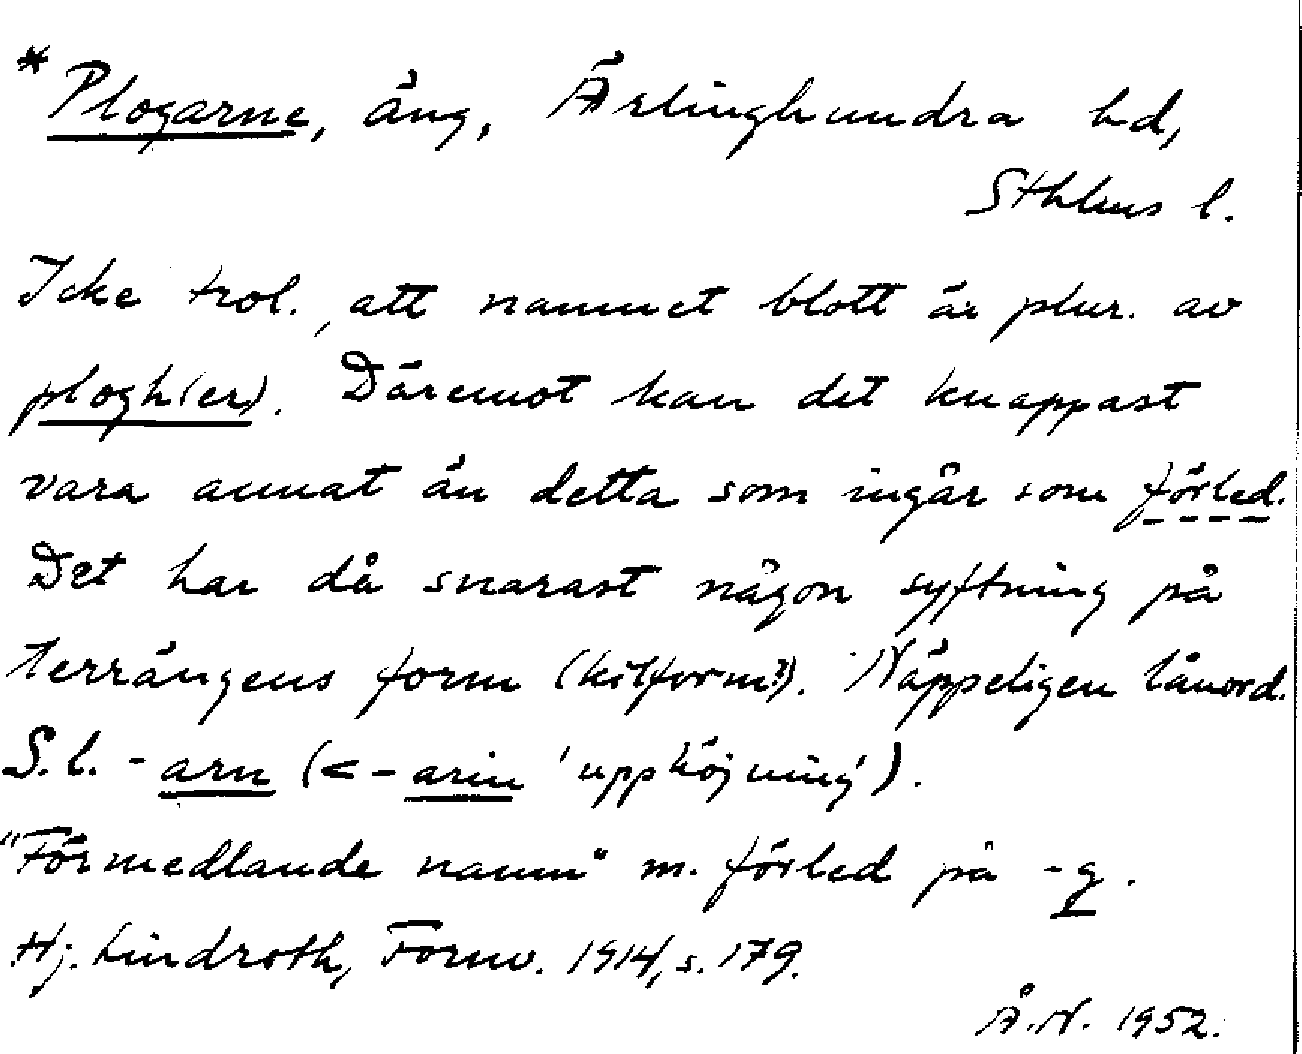 * Plogarne, äng, Ärlinghundra hd,
Sthlms l.
Icke trol., att namnet blott är plur. av
plogh(er). Däremot kan det knappast
vara annat än detta som ingår som förled.
Det har då snarast någon syftning på
terrängens form (kilform?). Näppeligen lånord.
S.l. -arn (< -arin 'upphöjning').
"Förmedlande namn" m. förled på -g.
Hj. Lindroth, Fornv. 1914, s. 179.
Å.N. 1952.